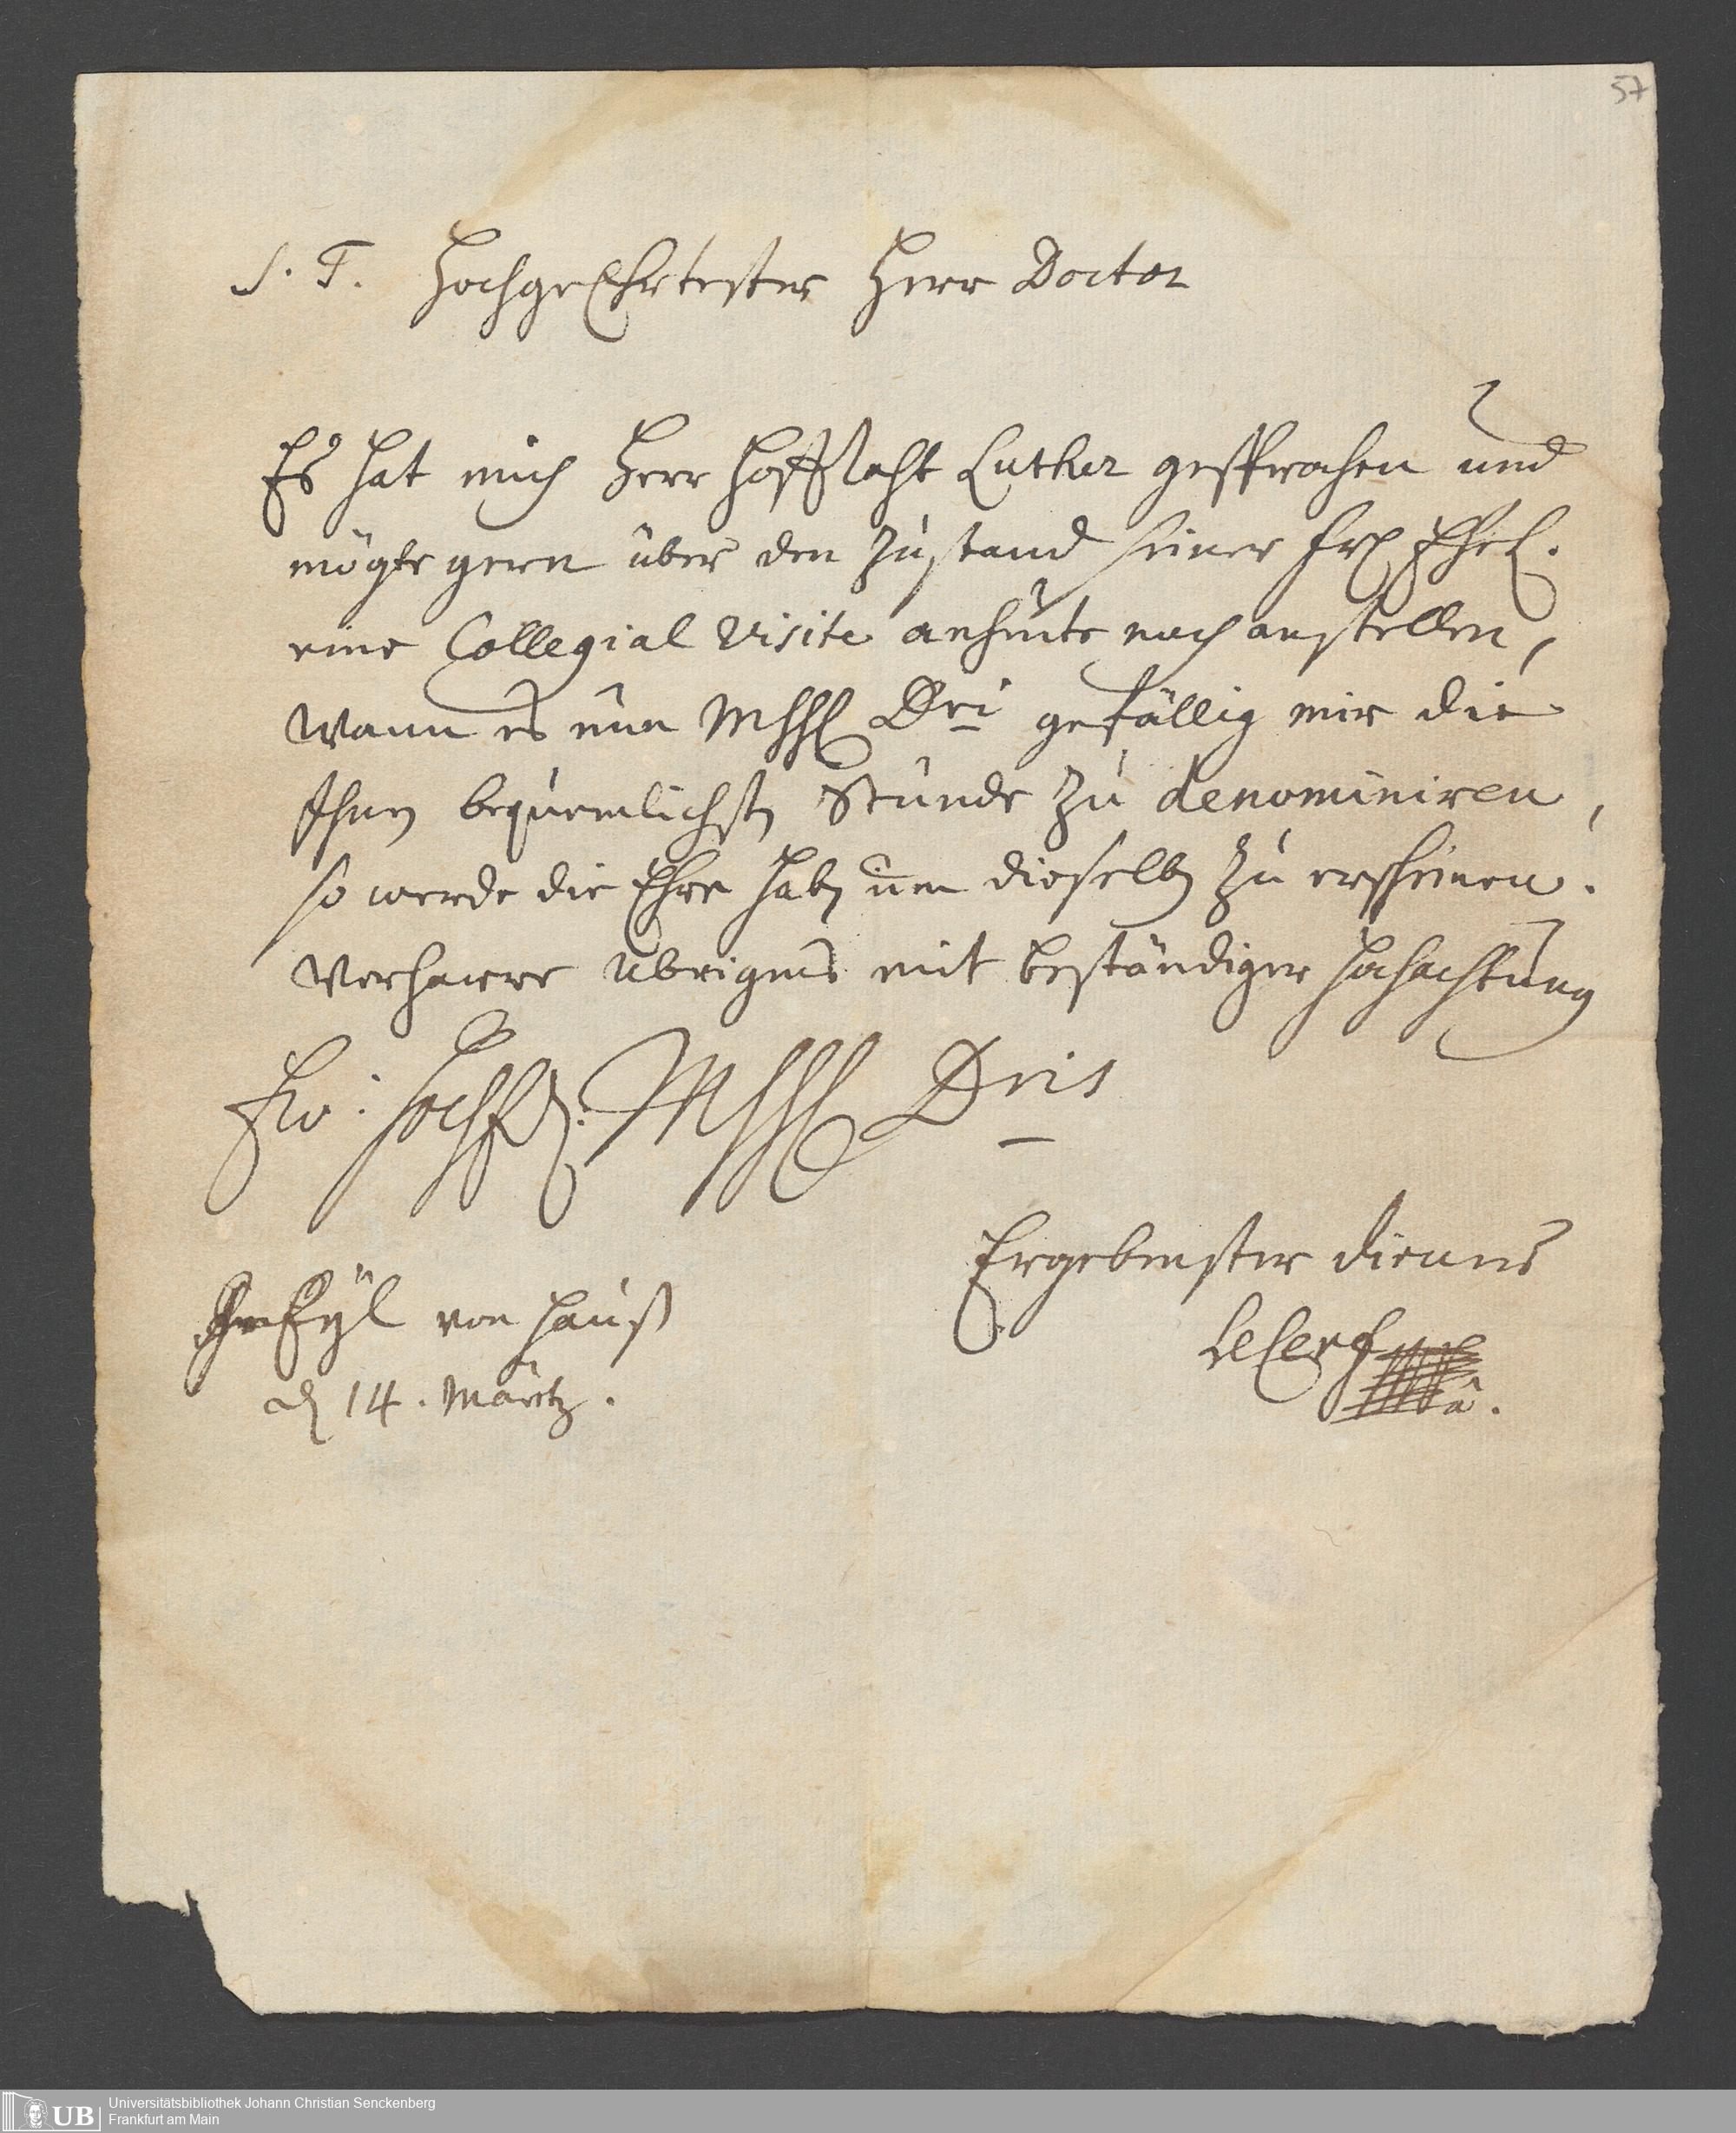 57
S. T. HochgeEhrtester Herr Doctor
Es hat mich Herr Hoffraht Luther gesprochen und
mögte gern über den Zustand seiner Fr. EheL.
eine Collegial Visite anheute noch anstellen,
wann es nun MhhE Dri gefällig mir die
Ihnen bequemlichste Stunde zu denominiren,
so werde die Ehre haben um dieselbe zu erscheinen.
Verharre übrigens mit beständiger Hochachtung
Ew: Hochf. MhhE Dris
Ergebenster Diener
Eyl von Hauß
d 14. Märtz.
LeCerf
Universitätsbibliothek Johann Christian Senckenberg
Frankfurt am Main
UB